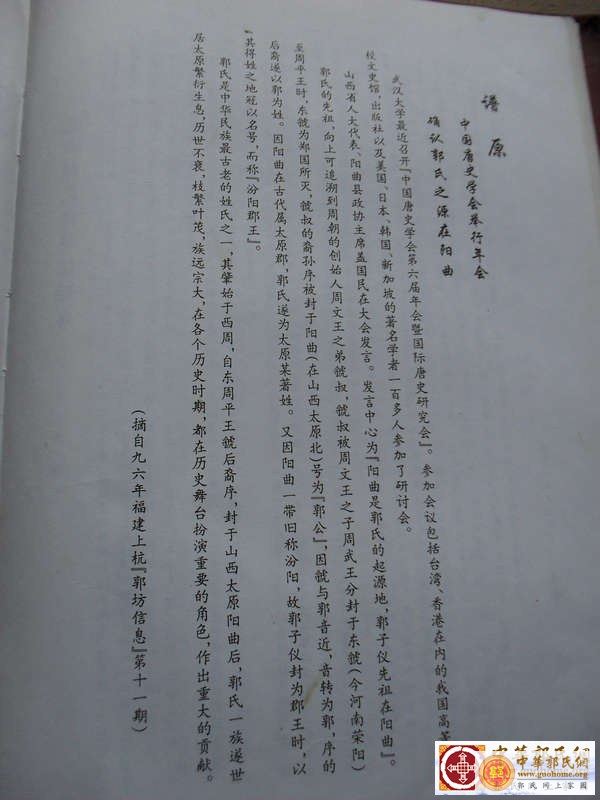 谱原
中国唐史学会举行年会
确认郭氏之源在阳曲
武汉大学最近召开『中国唐史学会第六届年会暨国际唐史研究会』。参加会议包括台湾、香港在内的我国高等
校文史馆,出版社以及美国、日本、韩国、新加坡的著名学者一百多人参加了研讨会。
山西省人大代表、阳曲县政协主席盖国民在大会发言。发言中心为『阳曲是郭氏的起源地,郭子仪先祖在阳曲』。
郭氏的先祖,向上可追溯到周朝的创始人周文王之弟虢叔,虢叔被周文王之子周武王分封于东虢(今河南荣阳)
至周平王时,东虢为郑国所灭,虢叔的裔孙序被封于阳曲(在山西太原北)号为『郭公』,因虢与郭音近,音转为郭,序的
后裔遂以郭为姓。因阳曲在古代属太原郡,郭氏遂为太原某著姓。又因阳曲一带旧称汾阳,故郭子仪封为郡王时,以
其得姓之地冠以名号,而称『汾阳郡王』。
郭氏是中华民族最古老的姓氏之一,其肇始于西周,自东周平王虢后裔序,封于山西太原阳曲后,郭氏一族遂世
居太原繁衍生息,历世不衰,枝繁叶茂,族远宗大,在各个历史时期,都在历史舞台扮演重要的角色,作出重大的贡献。
(摘自九六年福建上杭『郭坊信息』第十一期)
中華郭氏網
www.guohome.org
郭氏网上家园